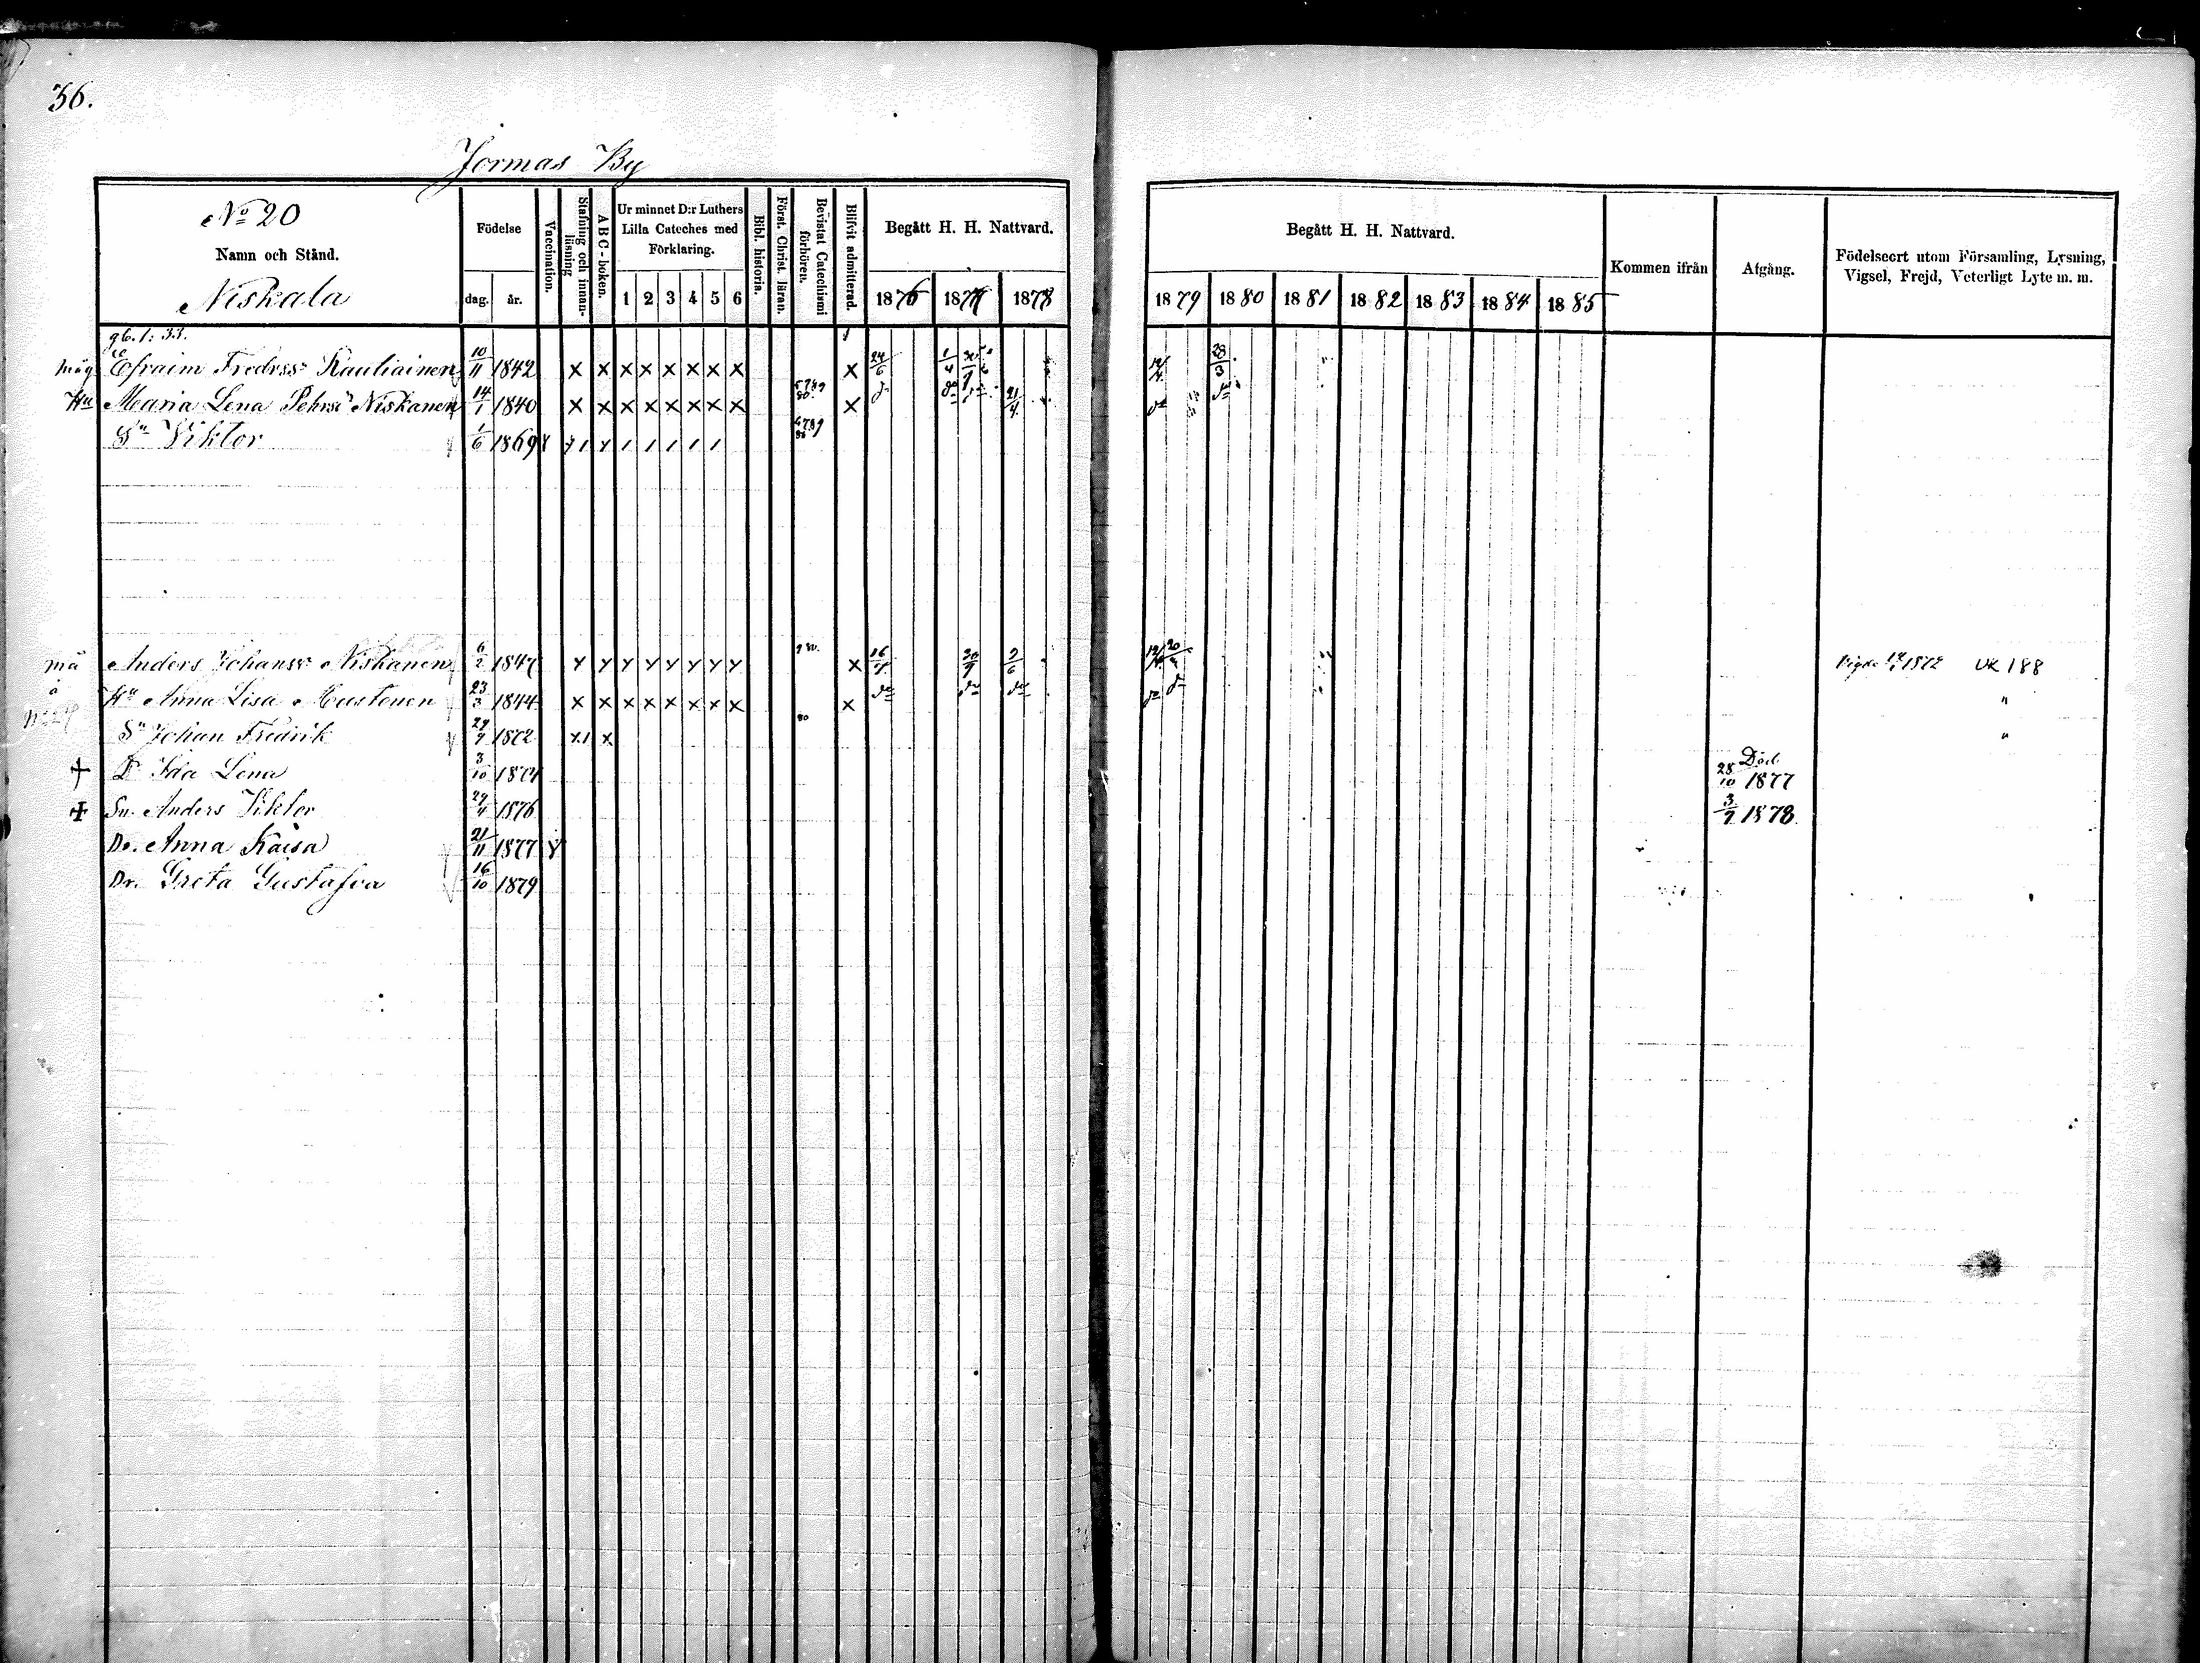 36.
Jormas By
No 20
Namn och Stånd.
Niskala
Födelse
dag. år.
Vaccination.
Stafning och innan-läsning
A B C - boken.
Ur minnet D:r Luthers
Lilla Cateches med
Förklaring.
1 2 3 4 5 6
Bibl. historia.
Först. Christ. läran.
Bevistat Catechismi förhören.
Blifvit admitterad.
Begått H. H. Nattvard.
1876 1877 1878
Begått H. H. Nattvard.
1879 1880 1881 1882 1883 1884 1885
Kommen ifrån
Afgång.
Födelseort utom Församling, Lysning,
Vigsel, Frejd, Veterligt Lyte m. m.
gb. 1: 33.
måg Efraim Fredrss: Rautiainen 10/11 1842 x x x x x x x x x 24/6 1/4 12/4 28/3
Hu Maria Lena Pehrsr Niskanen 14/1 1840 5789 80. x x x x x x x x x 21/4
Sn Viktor 1/6 1869 6789 80
Anders Johanss: Niskanen 6/2 1847 x x x x x x x x x 16/4 30/9 2/6 Vigde 1872 UK 188
Hu Anna Lisa Mustonen 23/3 1844 x x x x x x x x x "
Sn Johan Fredrik 29/7 1872 x1 x 80 "
+ Dr Ida Lena 3/10 1874 Död 28/10 1877
+ Sn. Anders Viktor 29/4 1876 3/7 1878.
Dr. Anna Kaisa 21/11 1877
Dr. Greta Gustafva 16/10 1879